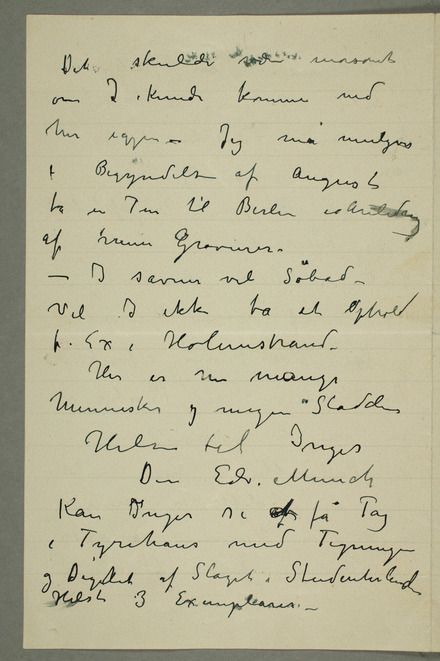 Det skulde være morsomt
om I kunde komme ned
her igjen – Jeg må muligens
i Begyndelsen af August
ta en Tur til Berlin i anledning
af mine Gravurer.
– I savner vel Søbad –
Vil I ikke ta et Ophold
f. Ex i Holmestrand –
Her er nu mange
Mennesker og megen Sladder
Hilsen til Inger
Din Edv. Munch
Kan Inger se at få Tag
i Tyrihans med Tegninger
og Digtet af Slaget i Studenterlunden
Helst 3 Exemplarer. –